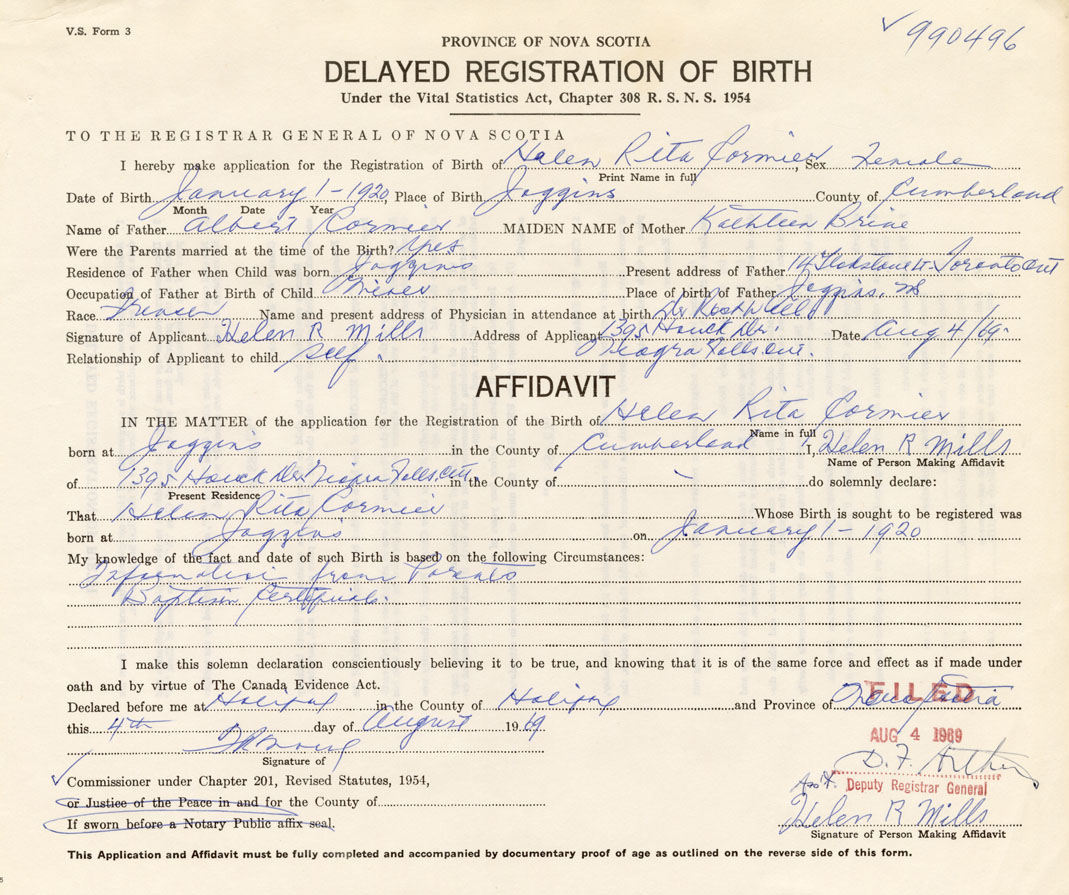 V.S. Form 3
✓ 990496
PROVINCE OF NOVA SCOTIA
DELAYED REGISTRATION OF BIRTH
Under the Vital Statistics Act, Chapter 308 R. S. N. S. 1954
TO THE REGISTRAR GENERAL OF NOVA SCOTIA
I hereby make application for the Registration of Birth of Helen Rita Cormier, Sex Female
Print Name in full
Date of Birth January 1 - 1920, Place of Birth Joggins County of Cumberland
Month Date Year
Name of Father Albert Cormier MAIDEN NAME of Mother Kathleen Brine
Were the Parents married at the time of the Birth? Yes
Residence of Father when Child was born Joggins Present address of Father 14 Gladstone Toronto Ont
Occupation of Father at Birth of Child Miner Place of birth of Father Joggins, NS
Race French Name and present address of Physician in attendance at birth Dr Rockwell
Signature of Applicant Helen R Mills Address of Applicant 1395 Houck Dr. Date Aug 4/69
Relationship of Applicant to child self. Niagra Falls Ont.
AFFIDAVIT
IN THE MATTER of the application for the Registration of the Birth of Helen Rita Cormier
Name in full
born at Joggins in the County of Cumberland I, Helen R Mills
Name of Person Making Affidavit
of 1395 Houck Dr. Niagra Falls, Ont in the County of - do solemnly declare:
Present Residence
That Helen Rita Cormier Whose Birth is sought to be registered was
born at Joggins on January 1 - 1920
My knowledge of the fact and date of such Birth is based on the following Circumstances:
Information from Parents
Baptism Certificate.
I make this solemn declaration conscientiously believing it to be true, and knowing that it is of the same force and effect as if made under
oath and by virtue of The Canada Evidence Act.
Declared before me at Halifax in the County of Halifax and Province of Nova Scotia
FILED
this 4th day of August 1969
AUG 4 1969
Signature of
D. F. Arthur
Commissioner under Chapter 201, Revised Statutes, 1954,
Asst. Deputy Registrar General
or Justice of the Peace in and for the County of
Helen R Mills
If sworn before a Notary Public affix seal.
Signature of Person Making Affidavit
This Application and Affidavit must be fully completed and accompanied by documentary proof of age as outlined on the reverse side of this form.